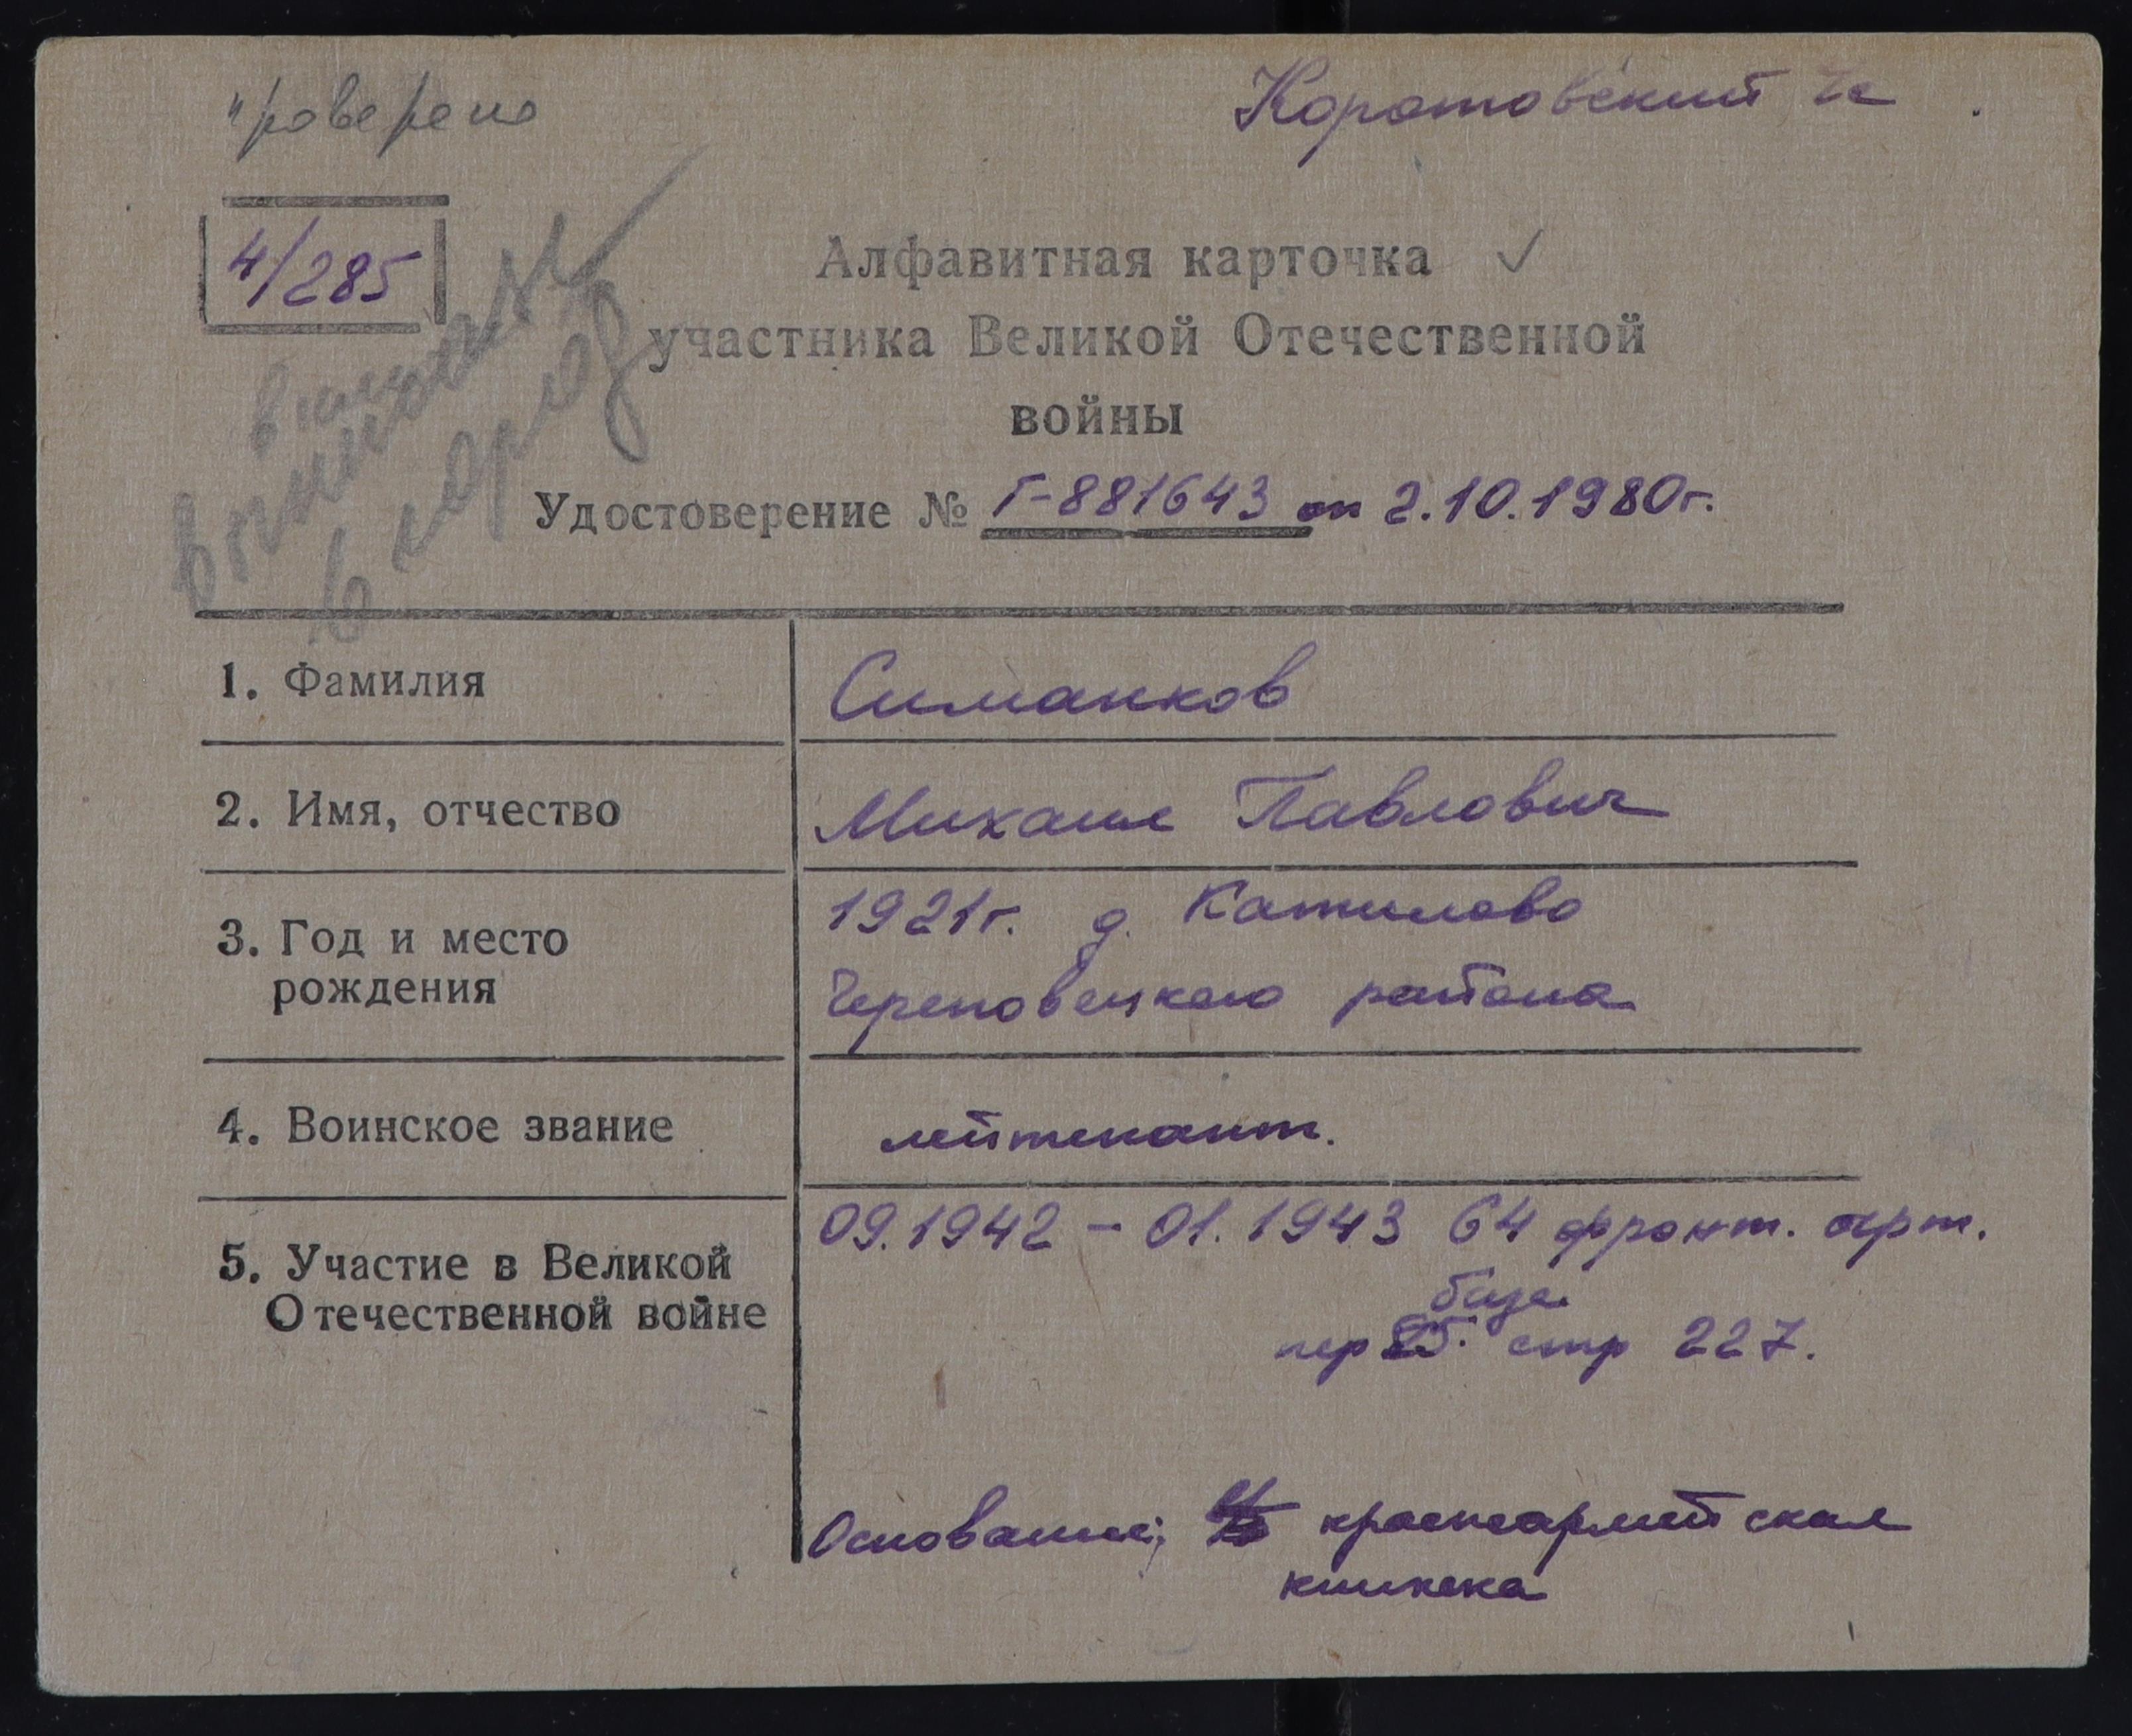 проверено
Коротовский
4/285
Алфавитная карточка ✓
участника Великой Отечественной
войны
Удостоверение № Г-881643 от 2.10.1980г.
1. Фамилия
Симанков
2. Имя, отчество
Михаил Павлович
3. Год и место
рождения
1921г. д. Катилово
Череповецкого района
4. Воинское звание
лейтенант.
5. Участие в Великой
Отечественной войне
09.1942 – 01.1943 64 фронт. арт.
база
пер стр 227.
Основание: красноармейская
книжка